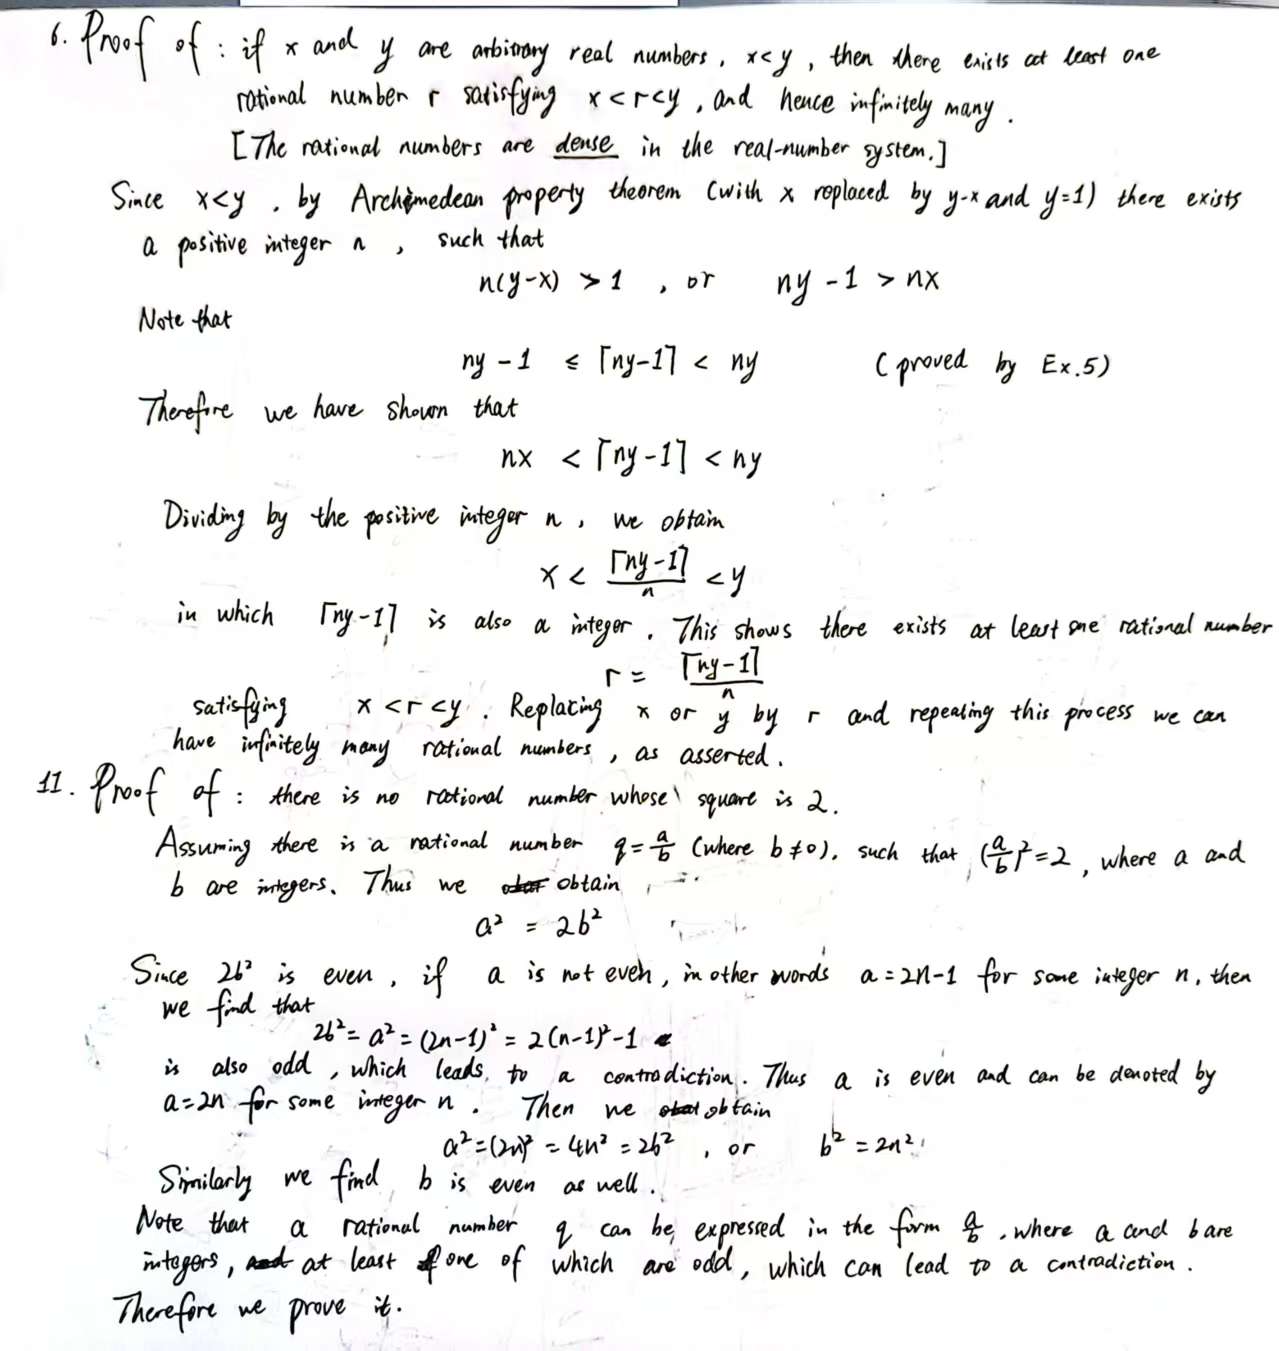 6. Proof of : if x and y are arbitrary real numbers, x<y, then there exists at least one
rational number r satisfying x<r<y, and hence infinitely many.
[The rational numbers are dense in the real-number system.]
Since x<y, by Archimedean property theorem (with x replaced by y-x and y=1) there exists
a positive integer n, such that
n(y-x) > 1, or ny - 1 > nx
Note that
ny - 1 ≤ ⌈ny-1⌉ < ny (proved by Ex.5)
Therefore we have shown that
nx < ⌈ny-1⌉ < ny
Dividing by the positive integer n, we obtain
x < ⌈ny-1⌉/n < y
in which ⌈ny-1⌉ is also a integer. This shows there exists at least one rational number
r = ⌈ny-1⌉/n
satisfying x<r<y. Replacing x or y by r and repeating this process we can
have infinitely many rational numbers, as asserted.
11. Proof of : there is no rational number whose square is 2.
Assuming there is a rational number q=a/b (where b≠0), such that (a/b)²=2, where a and
b are integers. Thus we obtain
a² = 2b²
Since 2b² is even, if a is not even, in other words a=2n-1 for some integer n, then
we find that
2b²=a²=(2n-1)²=2(n-1)²-1
is also odd, which leads to a contradiction. Thus a is even and can be denoted by
a=2n for some integer n. Then we obtain
a²=(2n)²=4n²=2b², or b²=2n².
Similarly we find b is even as well.
Note that a rational number q can be expressed in the form a/b, where a and b are
integers, at least one of which are odd, which can lead to a contradiction.
Therefore we prove it.